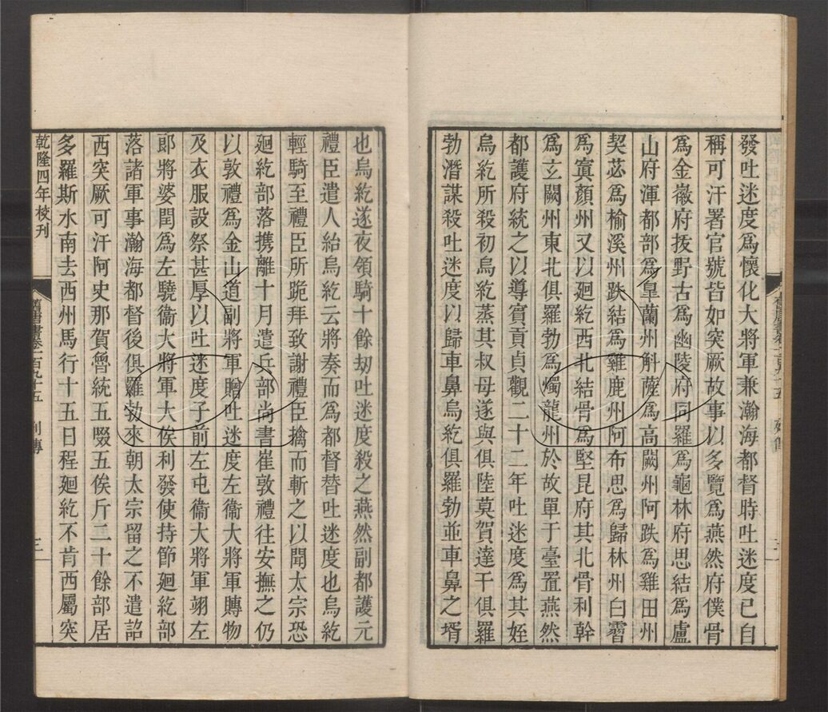 發吐迷度為懷化大將軍兼瀚海都督時吐迷度已自
稱可汗署官號皆如突厥故事以多覽為燕然府僕骨
為金徽府拔野古為幽陵府同羅為龜林府思結為盧
山府渾都部為皐蘭州斛薩為高闕州阿跌為雞田州
契苾為榆溪州跌結為雞鹿州阿布思為歸林州白霫
為寘顏州又以廻紇西北結骨為堅昆府其北骨利幹
為玄闕州東北俱羅勃為燭龍州於故單于臺置燕然
都護府統之以導賓貢貞觀二十二年吐迷度為其姪
烏紇所殺初烏紇蒸其叔母遂與俱陸莫賀達干俱羅
勃潛謀殺吐迷度以歸車鼻烏紇俱羅勃並車鼻之壻
也烏紇遂夜領騎十餘劫吐迷度殺之燕然副都護元
禮臣遣人紿烏紇云將奏而為都督替吐迷度也烏紇
輕騎至禮臣所跪拜致謝禮臣擒而斬之以聞太宗恐
廻紇部落携離十月遣兵部尚書崔敦禮往安撫之仍
以敦禮為金山道副將軍贈吐迷度左衞大將軍賻物
及衣服設祭甚厚以吐迷度子前左屯衞大將軍翊左
郎將婆閏為左驍衞大將軍大俟利發使持節廻紇部
落諸軍事瀚海都督後俱羅勃來朝太宗留之不遣詔
西突厥可汗阿史那賀魯統五啜五俟斤二十餘部居
多羅斯水南去西州馬行十五日程廻紇不肯西屬突
乾隆四年校刊 舊唐書卷一百九十五 列傳 三